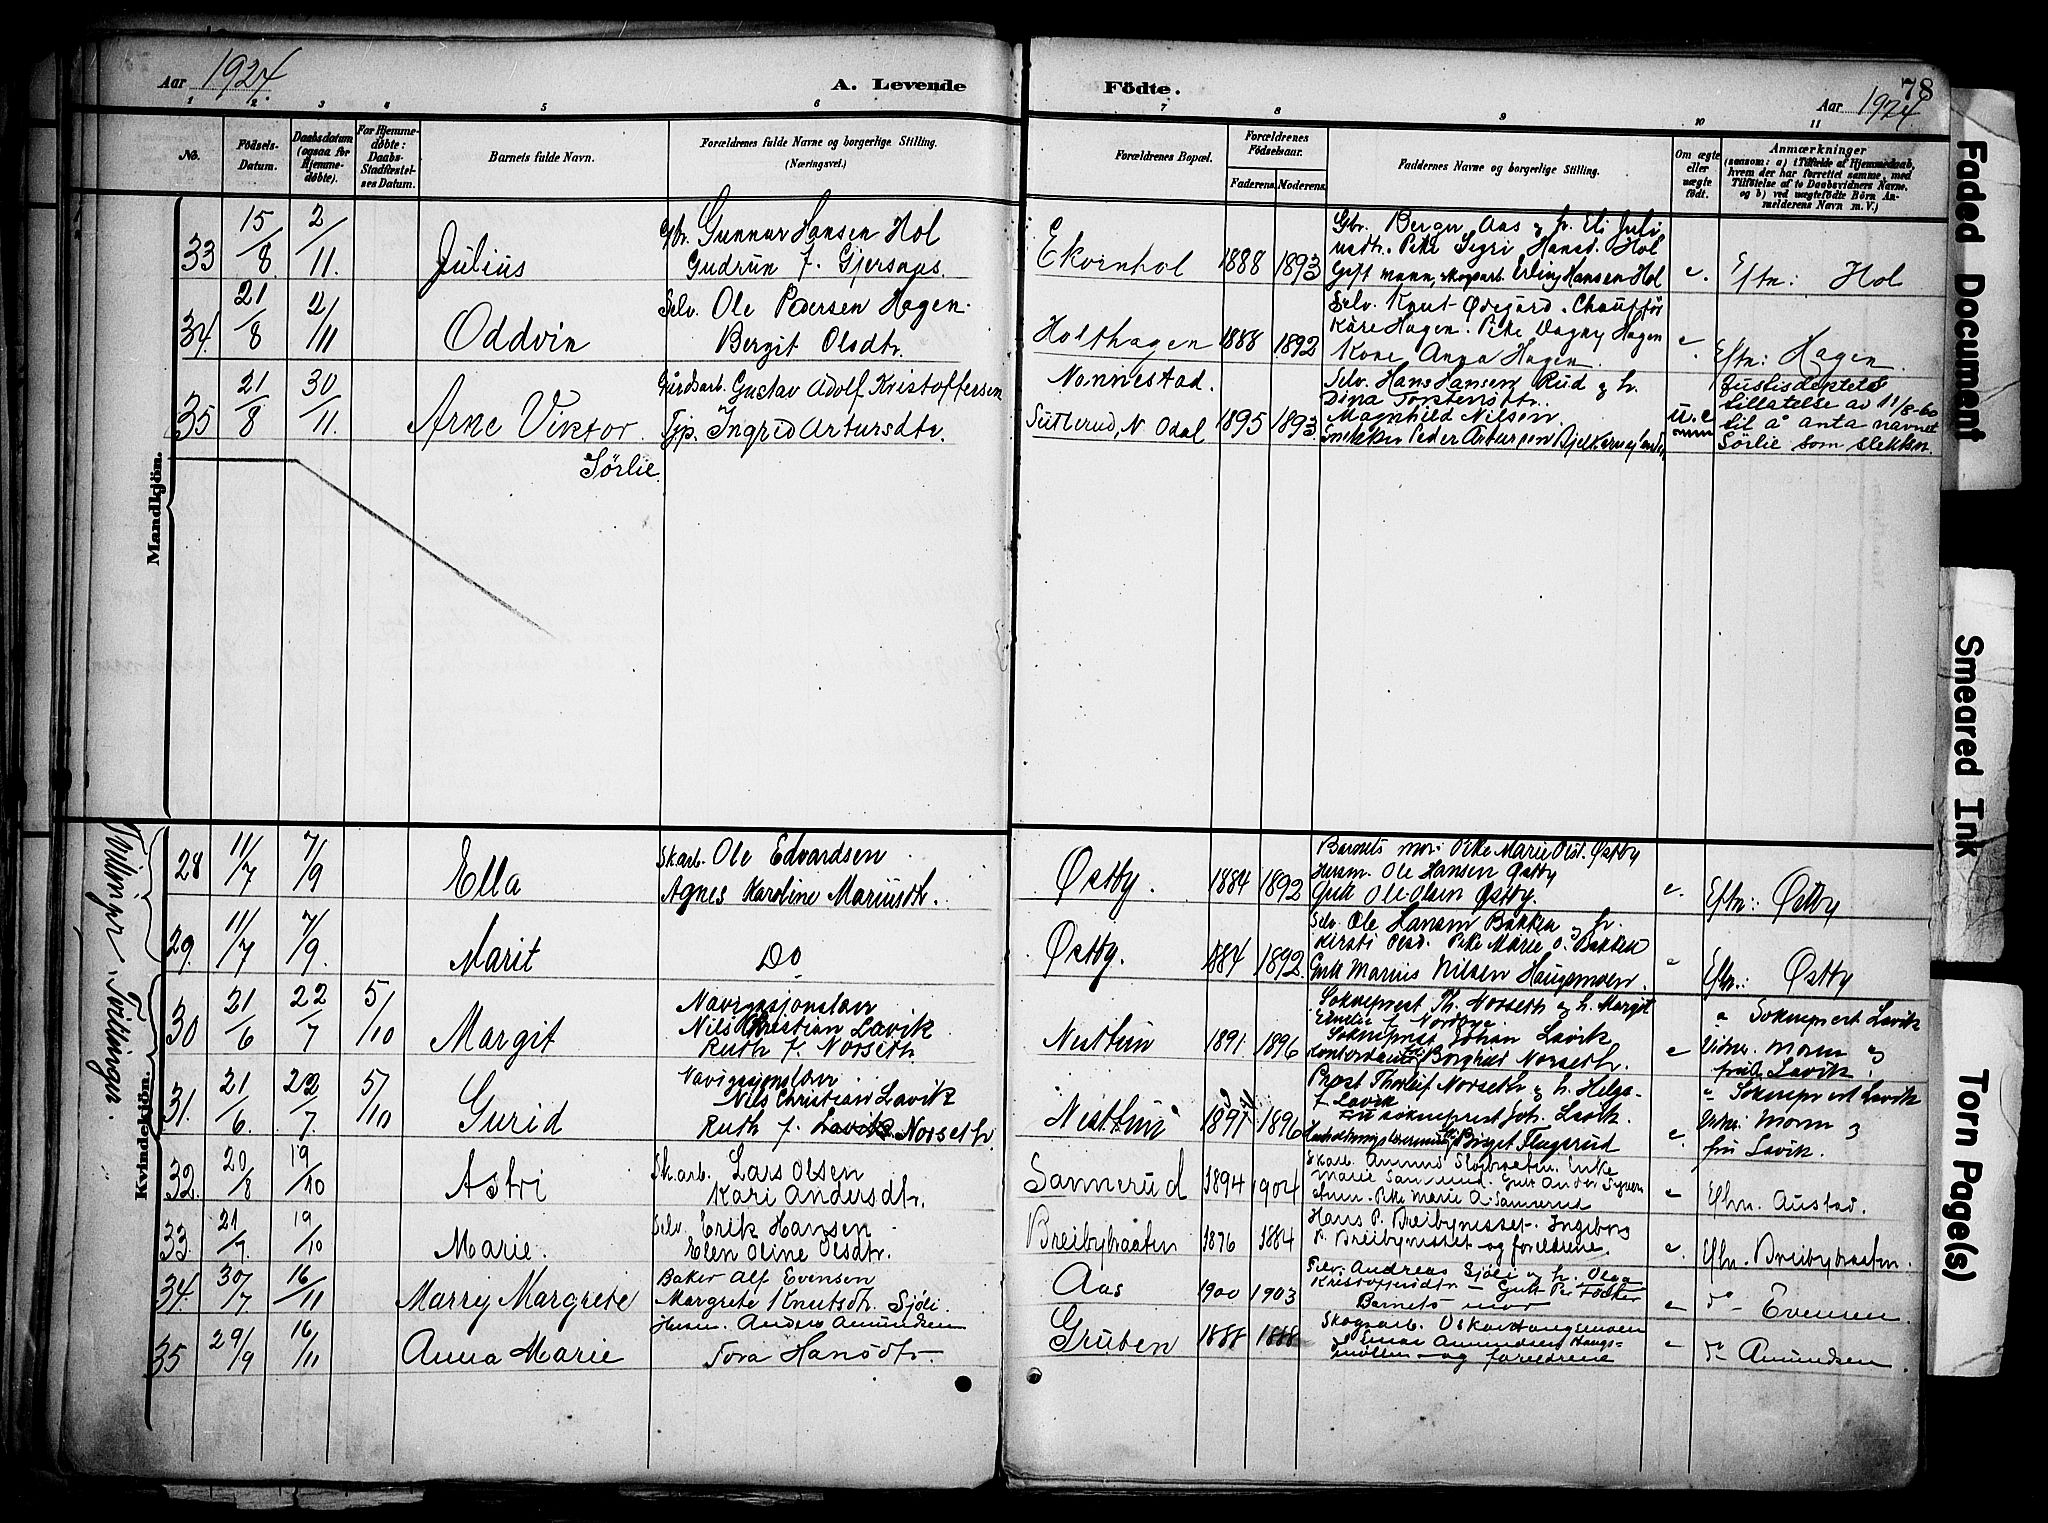 Aar 1924. A. Levende Födte. Aar 1924. 78
1 2 3 4 5 6 7 8 9 10 11
No. Födsels-Datum. Daabsdatum (ogsaa for Hjemme-døbte). For Hjemme-døbte: Daabs-Stadfæstel-ses Datum. Barnets fulde Navn. Forældrenes fulde Navne og borgerlige Stilling. (Næringsvei.) Forældrenes Bopæl. Forældrenes Fødselsaar. Faderens. Moderens. Faddernes Navne og borgerlige Stilling. Om ægte eller uægte født. Anmærkninger (saasom: a) i Tilfælde af Hjemmedaab, hvem der har forrettet samme, med Tilføielse af to Daabsvidners Navne, og b) ved uægtefødte Børn Anmelderens Navn m. V.)
Mandkjön.
33 15/8 2/11. Julius
Gbr. Gunnar Hansen Hol
Gudrun f. Gjersnaas.
Ekornhol 1888 1893
Gbr. Berger Aas og h. Eli Juli
usdtr. Pike Sigri Hansd. Hol
Gift mann, skogsarb. Erling Hansen Hol
e. Eftn: Hol
34. 21/8 2/11 Oddvin
Selv. Ole Pedersen Hagen.
Bergit Olsdtr.
Holthagen 1888 1892
Selv. Knut Ødegård. Chauffør
Kåre Hagen. Pike Dagny Hagen
Kone Anna Hagen.
e. Eftn: Hagen
35 21/8 30/11. Arne Viktor
Sørlie
Gårdsarb. Gustav Adolf Kristoffersen
Tjp. Ingrid Artursdtr.
Nannestad.
Sutterud, N. Odal 1895 1893
Selv. Hans Hansen Rud og h.
Dina Torstensdtr.
Magnhild Nilsen.
Snekker Peder Artursen
u. e
Justisdeptets
tillatelse av 11/8-60
til å anta navnet
Sørlie som slektsn.
Kvindekjön.
Tvillinger
Tvillinger.
28 11/7 7/9 Ella
Skarb. Ole Edvardsen
Agnes Karoline Mariusdtr.
Østby. 1884 1892
Barnets mor: Pike Marie Olsd. Østby
Herm. Ole Hansen Østby
Gutt Ole Olsen Østby.
e. Eftn: Østby
29. 11/7 7/9. Marit
Do
Østby. 1884 1892
Selv. Ole Hansen Bakken og h.
Kirsti Olsd. Pike Marie O. Bakken
Gutt Marius Nilsen Haugsmoen.
e Eftn: Østby
30 21/6 22/7 5/10 Margit
Navigasjonslær
Nils Christian Lavik
Ruth f. Norseth
Nesttun 1891 1896
Sokneprest Th. Norseth og h. Margit
Emilie f. Nordbye.
Sokneprest Johan Lavik
Kontordame Borghild Norseth.
e
a Sokneprest Lavik
Vidner. Moren og
fru Lavik.
31. 21/6. 22/7. 5/10 Gurid
Navigasjonslær
Nils Christian Lavik
Ruth f. Lavik Norseth.
Nesttun 1891 1896
Prost Thorleif Norseth og h. Helga
f. Lavik
Fru sokneprest Joh. Lavik.
Birgit Flagsrud
e.
a Sokneprest Lavik
Moren og
fru Lavik.
32. 20/8 19/10 Astri
Skarb. Lars Olsen
Kari Andersdtr.
Sannerud 1894 1904
Pike Marie A. Sannerud
e Eftn. Austad.
33. 21/7. 19/10 Marie.
Selv. Erik Hansen
Elen Oline Olsdtr.
Breibybraaten 1876 1884
Hans P. Breibymisset. Ingeborg
P. Breibymisset og foreldrene.
e. Eftn. Breibybraaten.
34. 30/7 16/11 Marry Margrete
Baker Alf Evensen
Margrete Knutsdtr. Sjøli.
Aas 1900 1903
Selv. Andreas Sjøli og h. Olga
Kristoffersdtr
Barnets mor
e do Evensen.
35 29/9 16/11 Anna Marie
Anders Amundsen
Tora Hansdtr.
Gruben 1888 1888
Skogsarb. Oskar Haugsmoen
Einar Amundsen Haugs-
og foreldrene
e do Amundsen.
Faded Document
Smeared Ink
Torn Page(s)